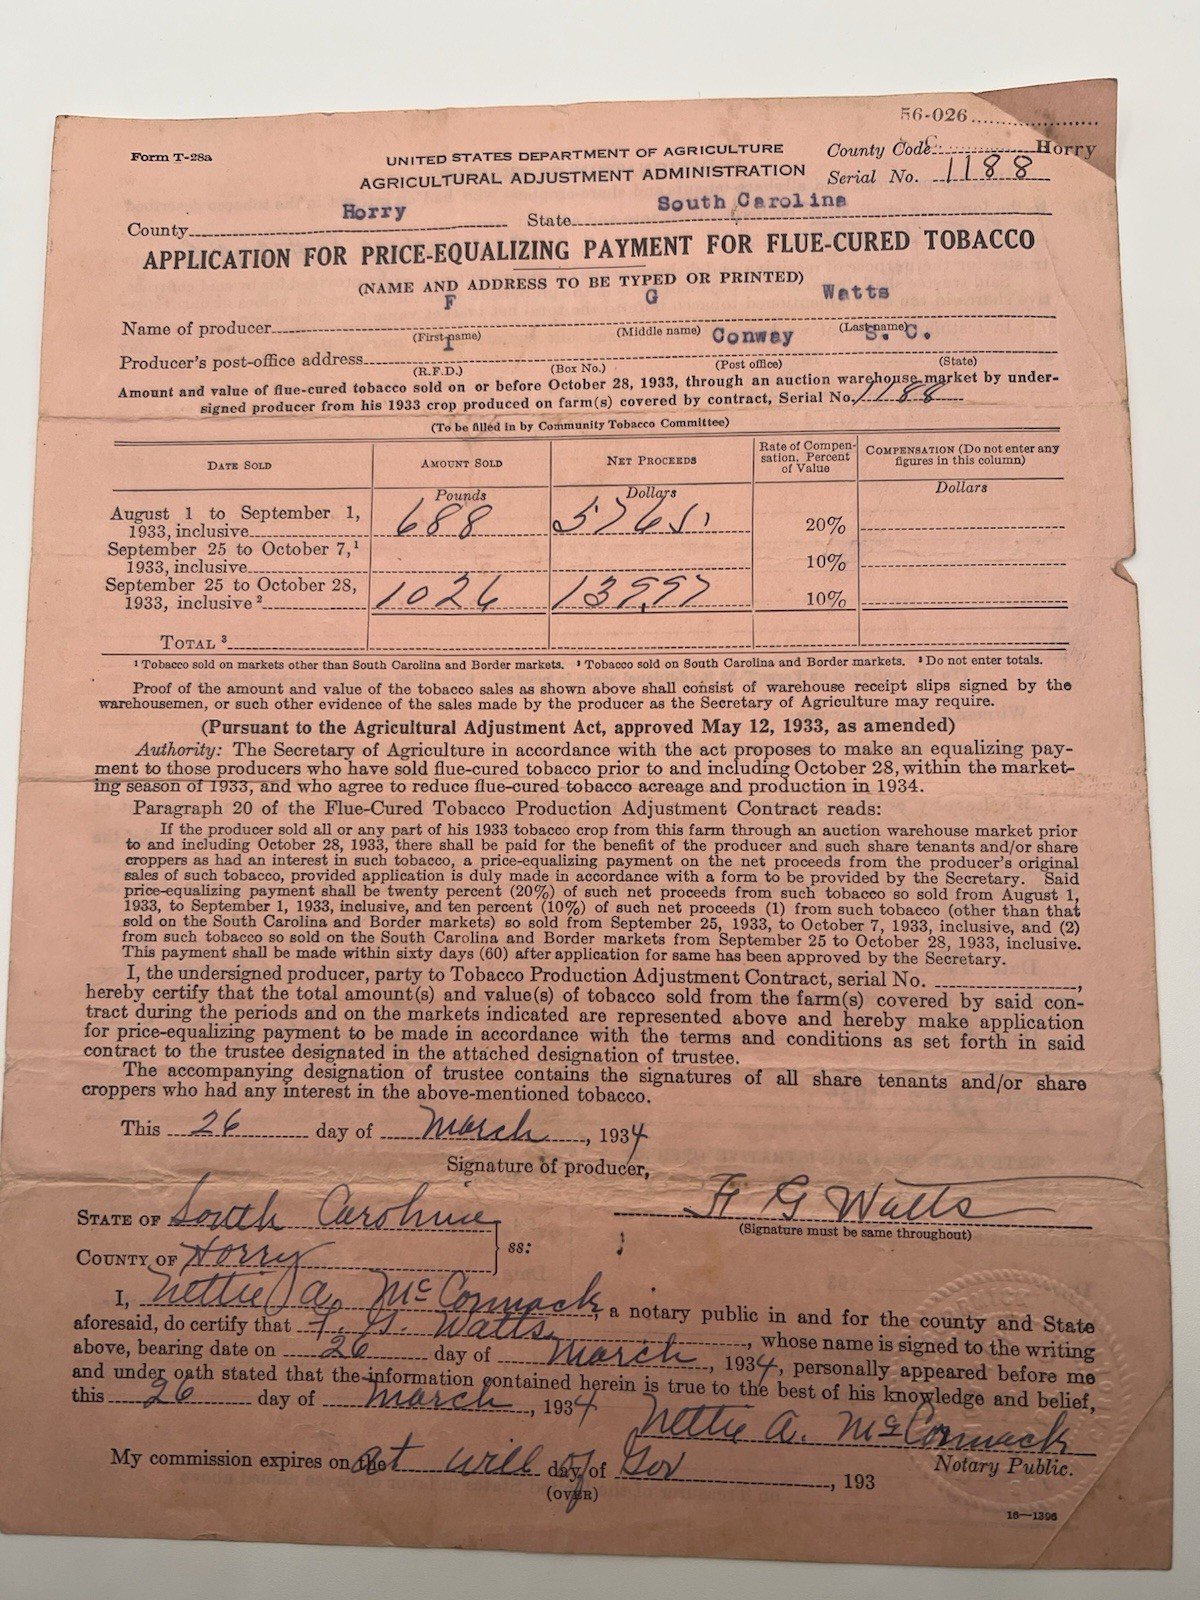 56-026
Form T-28a
UNITED STATES DEPARTMENT OF AGRICULTURE
County Code Horry
AGRICULTURAL ADJUSTMENT ADMINISTRATION
Serial No. 1188
County Horry State South Carolina
APPLICATION FOR PRICE-EQUALIZING PAYMENT FOR FLUE-CURED TOBACCO
(NAME AND ADDRESS TO BE TYPED OR PRINTED)
F G Watts
Name of producer
(First name) (Middle name) (Last name)
1 Conway S. C.
Producer's post-office address
(R.F.D.) (Box No.) (Post office) (State)
Amount and value of flue-cured tobacco sold on or before October 28, 1933, through an auction warehouse market by under-
signed producer from his 1933 crop produced on farm(s) covered by contract, Serial No. 1188
(To be filled in by Community Tobacco Committee)
DATE SOLD AMOUNT SOLD NET PROCEEDS Rate of Compen-sation, Percent of Value COMPENSATION (Do not enter any figures in this column)
Pounds Dollars Dollars
August 1 to September 1,
1933, inclusive 688 20%
September 25 to October 7,¹
1933, inclusive 10%
September 25 to October 28,
1933, inclusive ² 1026 139.97 10%
TOTAL ³
¹ Tobacco sold on markets other than South Carolina and Border markets. ² Tobacco sold on South Carolina and Border markets. ³ Do not enter totals.
Proof of the amount and value of the tobacco sales as shown above shall consist of warehouse receipt slips signed by the
warehousemen, or such other evidence of the sales made by the producer as the Secretary of Agriculture may require.
(Pursuant to the Agricultural Adjustment Act, approved May 12, 1933, as amended)
Authority: The Secretary of Agriculture in accordance with the act proposes to make an equalizing pay-
ment to those producers who have sold flue-cured tobacco prior to and including October 28, within the market-
ing season of 1933, and who agree to reduce flue-cured tobacco acreage and production in 1934.
Paragraph 20 of the Flue-Cured Tobacco Production Adjustment Contract reads:
If the producer sold all or any part of his 1933 tobacco crop from this farm through an auction warehouse market prior
to and including October 28, 1933, there shall be paid for the benefit of the producer and such share tenants and/or share
croppers as had an interest in such tobacco, a price-equalizing payment on the net proceeds from the producer's original
sales of such tobacco, provided application is duly made in accordance with a form to be provided by the Secretary. Said
price-equalizing payment shall be twenty percent (20%) of such net proceeds from such tobacco so sold from August 1,
1933, to September 1, 1933, inclusive, and ten percent (10%) of such net proceeds (1) from such tobacco (other than that
sold on the South Carolina and Border markets) so sold from September 25, 1933, to October 7, 1933, inclusive, and (2)
from such tobacco so sold on the South Carolina and Border markets from September 25 to October 28, 1933, inclusive.
This payment shall be made within sixty days (60) after application for same has been approved by the Secretary.
I, the undersigned producer, party to Tobacco Production Adjustment Contract, serial No.
hereby certify that the total amount(s) and value(s) of tobacco sold from the farm(s) covered by said con-
tract during the periods and on the markets indicated are represented above and hereby make application
for price-equalizing payment to be made in accordance with the terms and conditions as set forth in said
contract to the trustee designated in the attached designation of trustee.
The accompanying designation of trustee contains the signatures of all share tenants and/or share
croppers who had any interest in the above-mentioned tobacco.
This 26 day of March, 1934
Signature of producer,
F G Watts
STATE OF South Carolina
(Signature must be same throughout)
COUNTY OF Horry ss:
I, Nettie A. McCormack, a notary public in and for the county and State
aforesaid, do certify that F. G. Watts, whose name is signed to the writing
above, bearing date on 26 day of March, 1934, personally appeared before me
and under oath stated that the information contained herein is true to the best of his knowledge and belief,
this 26 day of March, 1934
Nettie A. McCormack
My commission expires on the at will day of of Gov, 193
Notary Public.
(OVER)
16—1396